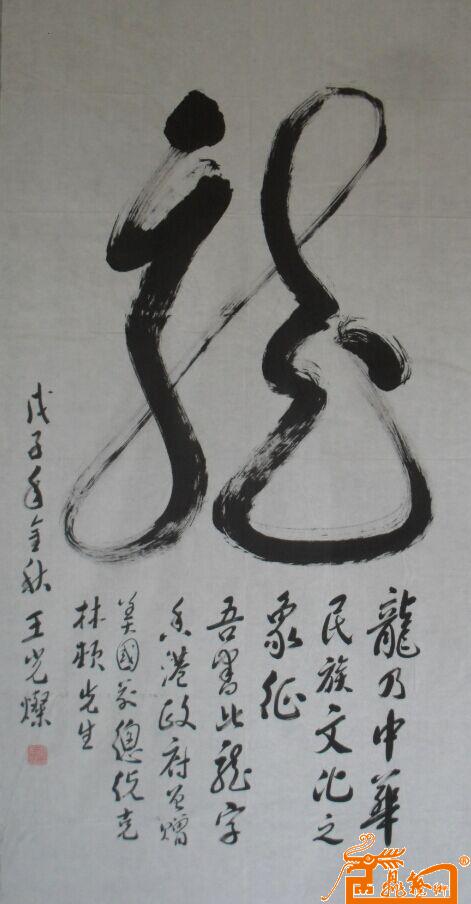 龍
龍乃中華
民族文化之
象征
吾書此龍字
香港政府曾贈
美國前總统克
林頓先生
戊子年金秋 王光燦